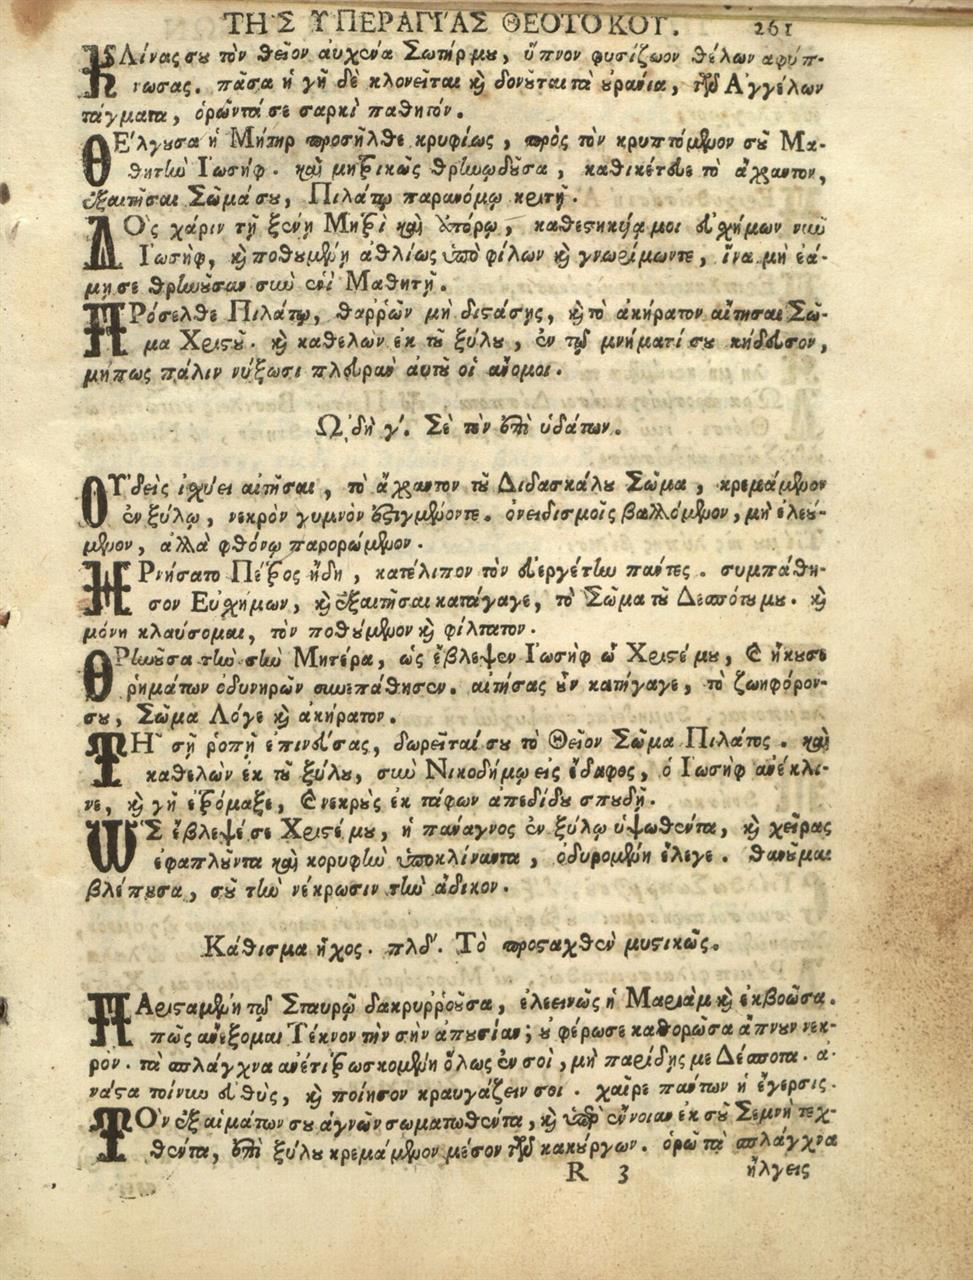 ΤΗΣ ΥΠΕΡΑΓΙΑΣ ΘΕΟΤΟΚΟΥ. 261
ΚΛίνας σου τὸν θεῖον αὐχένα Σωτήρ μου, ὕπνον φυσίζωον θέλων ἀφύπ-
νωσας. πᾶσα ἡ γῆ δὲ κλονεῖται καὶ δονοῦται τὰ οὐράνια, τῶν Ἀγγέλων
τάγματα, ὁρῶντά σε σαρκὶ παθητόν.
ΘΕλγουσα ἡ Μήτηρ προσῆλθε κρυφίως, πρὸς τὸν κρυπτόμενον σοῦ Μα-
θητὴν Ἰωσήφ. καὶ μητρικῶς θρηνῳδοῦσα, καθικέτευε τὸ ἄχραντον,
ἐξαιτῆσαι Σῶμά σου, Πιλάτῳ παρανόμῳ κριτῇ.
ΔΟς χάριν τῇ ξένῃ Μητρὶ καὶ ἀπόρῳ, καθεστηκυίᾳ μοι εὐσχήμων νῦν
Ἰωσὴφ, καὶ ποθουμένῃ ἀθλίως ὑπὸ φίλων καὶ γνωρίμων τε, ἵνα μὴ ἐά-
μῃ σε θρηνοῦσαν σὺν ἑνὶ Μαθητῇ.
ΠΡόσελθε Πιλάτῳ, θαρρῶν μὴ διστάσῃς, καὶ τὸ ἀκήρατον αἴτησαι Σῶ-
μα Χριστοῦ. καὶ καθελὼν ἐκ τοῦ ξύλου, ἐν τῷ μνήματί σου κήδευσον,
μήπως πάλιν νύξωσι πλευρὰν αὐτοῦ οἱ ἄνομοι.
ᾨδὴ γ΄. Σὲ τὸν ἐπὶ ὑδάτων.
ΟΥδεὶς ἰσχύει αἰτῆσαι, τὸ ἄχραντον τοῦ Διδασκάλου Σῶμα, κρεμάμενον
ἐν ξύλῳ, νεκρὸν γυμνὸν ἐστιγμένον τε. ὀνειδισμοῖς βαλλόμενον, μὴ ἐλεού-
μενον, ἀλλὰ φθόνῳ παρορώμενον.
ΗΡνήσατο Πέτρος ἤδη, κατέλιπον τὸν εὐεργέτην πάντες. συμπάθη-
σον Εὐσχήμων, καὶ ἐξαιτῆσαι κατάγαγε, τὸ Σῶμα τοῦ Δεσπότου μου. καὶ
μόνη κλαύσομαι, τὸν ποθούμενον καὶ φίλτατον.
ΘΡηνοῦσαν τὴν σὴν Μητέρα, ὡς ἔβλεψεν Ἰωσὴφ ὦ Χριστέ μου, καὶ ἤκουσε
ῥημάτων ὀδυνηρῶν συνεπάθησεν. αἰτήσας οὖν κατήγαγε, τὸ ζωηφόρον
σου, Σῶμα Λόγε καὶ ἀκήρατον.
ΤΗ σῇ ῥοπῇ ἐπινεύσας, δωρεῖταί σου τὸ Θεῖον Σῶμα Πιλάτος. καὶ
καθελὼν ἐκ τοῦ ξύλου, σὺν Νικοδήμῳ εἰς ἔδαφος, ὁ Ἰωσὴφ ἀνέκλι-
νε, καὶ γῆ ἐτρόμαξε, καὶ νεκροὺς ἐκ τάφων ἀπεδίδου σπουδῇ.
ΩΣ ἔβλεψέ σε Χριστέ μου, ἡ πάναγνος ἐν ξύλῳ ὑψωθέντα, καὶ χεῖρας
ἐφαπλοῦντα καὶ κορυφὴν ὑποκλίναντα, ὀδυρομένη ἔλεγε. θανοῦμαι
βλέπουσα, σοῦ τὴν νέκρωσιν τὴν ἄδικον.
Κάθισμα ἦχος. πλ δ΄. Τὸ προσταχθὲν μυστικῶς.
ΠΑρισταμένη τῷ Σταυρῷ δακρυρροοῦσα, ἐλεεινῶς ἡ Μαριὰμ καὶ ἐκβοῶσα.
πῶς ἀνέξομαι Τέκνον τὴν σὴν ἀπουσίαν; οὐ φέρω σε καθορῶσα ἄπνουν νεκ-
ρόν. τὰ σπλάγχνα ἀνέτιτρωσκομένη ὅλως ἐν σοί, μὴ παρίδῃς με Δέσποτα. ἀ-
νάστα τοίνυν εὐθὺς, καὶ ποίησον κραυγάζειν σοι. χαῖρε πάντων ἡ ἔγερσις.
ΤΟν ἐξ αἱμάτων σου ἁγνῶν σωματωθέντα, καὶ ὑπὲρ ἔννοιαν ἐκ σοῦ Σεμνὴ τεχ-
θέντα, ἐπὶ ξύλου κρεμάμενον μέσον τῶν κακούργων. ὁρῶ τὰ σπλάγχνα
R 3 ἤλγεις